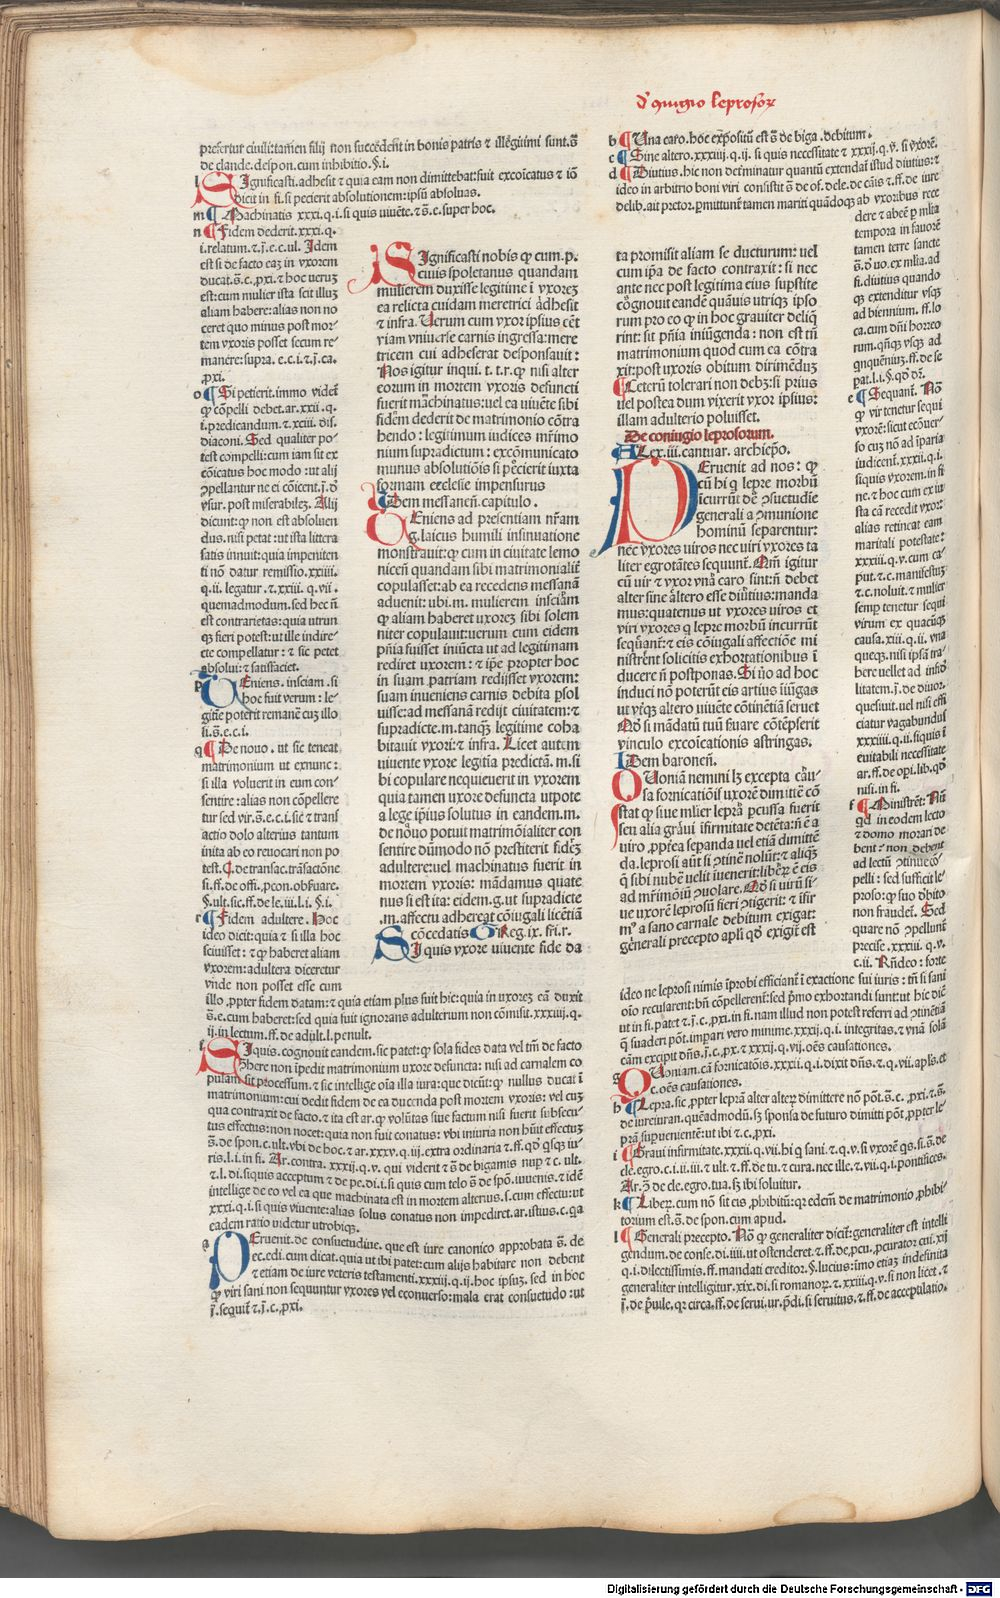 d' coniugio leprosoꝝ
prefertur ciuili: tamen filij non succedent in bonis patris ⁊ illegitimi sunt. s̄.
de clande. despon. cum inhibitio. §. i.
l Significasti. adhesit ⁊ quia eam non dimittebat: fuit excoicatus ⁊ iō
dicit in fi. si pecierit absolutionem: ipsū absoluas.
m ¶ Machinatis xxxi. q. i. si quis viuēte. ⁊ s̄. e. super hoc.
n ¶ Fidem dederit. xxxi. q.
i. relatum. ⁊ j̄. e. c. ul. Idem
est si de facto eaꝫ in vxorem
ducat. s̄. c. ꝓxi. ⁊ hoc ueruꝫ
est: cum mulier ista scit illuꝫ
aliam habere: alias non no
ceret quo minus post mor⸗
tem vxoris posset secum re⸗
manere: supra. e. c. i. ⁊ j̄. ca.
ꝓxi.
o ¶ Si petierit. immo videt̄
ꝙ cōpelli debet. ar. xxii. q.
i. predicandum. ⁊ xciii. dis.
diaconi. Sed qualiter po⸗
test compelli: cum iam sit ex
cōicatus hoc modo: ut alij
ꝯpellantur ne ei cōicent. j̄. d̓
vsur. post miserabileꝫ. Alij
dicunt: ꝙ non est absoluen
dus. nisi petat: ut ista littera
satis innuit: quia impeniten
ti nō datur remissio. xxiiii.
q. ii. legatur. ⁊ xxiii. q. vii.
quemadmodum. sed hec n̄
est contrarietas: quia utrun
qꝫ fieri potest: ut ille indire⸗
cte compellatur: ⁊ sic petet
absolui: ⁊ satisfaciet.
p VEniens. insciam. si
hoc fuit verum: le⸗
gitīe poterit remanē cuꝫ illo
si. s̄. e. c. i.
q ¶ De nouo. ut sic teneat
matrimonium ut exnunc:
si illa voluerit in eum con⸗
sentire: alias non cōpellere
tur sed vir. s̄. e. c. i. sic ⁊ trans
actio dolo alterius tantum
inita ab eo reuocari non po
test. C. de transac. trāsactōne
si. ff. de offi. ꝓcon. obseruare.
§. ult. sic. ff. de le. iii. l. i. §. i.
r ¶ Fidem adultere. Hoc
ideo dicit: quia ⁊ si illa hoc
sciuisset: ⁊ ꝙ haberet aliam
vxorem: adultera diceretur
vnde non posset esse cum
illo. ꝓpter fidem datam: ⁊ quia etiam plus fuit hic: quia in uxoreꝫ eā duxit
s̄. e. cum haberet: sed quia fuit ignorans adulterium non cōmisit. xxxiiii. q.
ij. in lectum. ff. de adult. l. penult.
s SIquis. cognouit eandem. sic patet: ꝙ sola fides data vel tm̄ de facto
ꝯtrahere non īpedit matrimonium uxore defuncta: nisi ad carnalem co
pulam sit processum. ⁊ sic intellige oīa illa iura: que dicūt: ꝙ nullus ducat ī
matrimonium: cui dedit fidem de ea ducenda post mortem vxoris: vel cuꝫ
qua contraxit de facto. ⁊ ita est ar. ꝙ volūtas siue factum nisi fuerit subsecu⸗
tus effectus: non nocet: quia non fuit conatus: vbi iniuria non hūit effectuꝫ
s̄. de spon. c. ult. vbi de hoc. ⁊ ar. xxxv. q. iij. extra ordinaria ⁊ ff. qd̓ qsqꝫ iu⸗
ris. l. i. in fi. Ar. contra. xxxij. q. v. qui viderit ⁊ s̄. de bigamis nup ⁊ c. ult.
⁊ l. di. siquis acceptum ⁊ de pe. di. i. si quis cum telo s̄. de spō. iuuenis. ⁊ idē
intellige de eo vel ea que machinata est in mortem alterius. s. cum effectu: ut
xxxi. q. i. si quis viuente: alias solus conatus non impediret. ar. istius. c. qa
eadem ratio uidetur utrobiqꝫ.
a PEruenit. de consuetudine. que est iure canonico approbata s̄. de
ec. edi. cum dicat. quia ut ibi patet: cum alijs habitare non debent
⁊ etiam de iure veteris testamenti. xxxij. q. ij. hoc ipsuꝫ. sed in hoc
ꝙ viri sani non sequuntur vxores vel econuerso: mala erat consuetudo: ut
j̄. sequit̄ ⁊ j̄. c. ꝓxi.
SIgnificasti nobis ꝙ cum. p.
ciuis spoletanus quandam
mulierem duxisse legitime ī vxoreꝫ
ea relicta cuidam meretrici adhesit
⁊ infra. Verum cum vxor ipsius cēt
viam vniuerse carnis ingressa: mere
tricem cui adheserat desponsauit:
Nos igitur inqui. t. t. r. ꝙ nisi alter
eorum in mortem vxoris defuncti
fuerit machinatus: uel ea uiuēte sibi
fidēm dederit de matrimonio cōtra
hendo: legitimum iudices mr̄imo
nium supradictum: excōmunicato
munus absolutiōis si pecierit iuxta
formam ecclesie impensurus
Idem messanen̄. capitulo.
VEniens ad presentiam nr̄am
g. laicus humili insinuatione
monstrauit: ꝙ cum in ciuitate lemo
nicen̄ quandam sibi matrimonialit̄
copulasset: ab ea recedens messanā
aduenit: ubi. m. mulierem insciam̄
ꝙ aliam haberet uxoreꝫ sibi solem
niter copulauit: uerum cum eidem
pn̄ia fuisset iniūcta ut ad legitimam
rediret uxorem: ⁊ ip̄e propter hoc
in suam patriam redijsset vxorem:
suam inueniens carnis debita ꝑsol
uisse: ad messanā redijt ciuitatem: ⁊
supradicte. m. tanqꝫ legitime coha
bitauit vxori: ⁊ infra. Licet autem
uiuente vxore legitīa predictā. m. si
bi copulare nequeuerit in vxorem
quia tamen uxore defuncta utpote
a lege ip̄ius solutus in eandem. m.
de nouo potuit matrimōialiter con
sentire dūmodo nō prestiterit fideꝫ
adultere: uel machinatus fuerit in
mortem vxoris: mādamus quate
nus si est ita: eidem. g. ut supradicte
.m. affectu adhereat cōiugali licētiā
cōcedatis Greg. ix. fri. r.
SIquis vxore uiuente fide da
ta promisit aliam se ducturum: uel
cum ip̄a de facto contraxit: si nec
ante nec post legitima eius suꝑstite
cōgnouit eandē quāuis utriqꝫ ipso
rum pro eo ꝙ in hoc grauiter deliq̄
rint: sit pn̄ia iniūgenda: non est tn̄
matrimonium quod cum ea cōtra
xit: post uxoris obitum dirimēduꝫ
¶ Ceterū tolerari non debꝫ: si prius
uel postea dum vixerit vxor ipsius:
illam adulterio poluisset.
De coniugio leprosorum.
ALex. iii. cantuar. archiep̄o.
PEruenit ad nos: ꝙ
cū hi q̄ lepre morbū
īcurrūt de ꝯsuetudie
generali a ꝯmunione
hominū separentur:
nec vxores uiros nec uiri vxores ta
liter egrotātes sequunt̄. Nm̄ igitur
cū uir ⁊ vxor vna caro sint: n̄ debet
alter sine altero esse diutius: manda
mus: quatenus ut vxores uiros et
viri vxores q̄ lepre morbū incurrūt
seq̄uant̄: ⁊ eis cōiugali affectiōe mi
nistrēnt solicitis exhortationibus ī
ducere n̄ postponas. Si uo ad hoc
induci nō poterūt eis artius iiūgas
ut vtqꝫ altero uiuēte cōtinētiā seruet
Nd̓ si mādatū tuū suare cōtēpserit
vinculo excoīcationis astringas.
Idem baronen̄.
QUoniā nemini lꝫ excepta cāu⸗
sa fornicatiōis uxorē dimittē cō
stat ꝙ siue mlier leprā ꝑcussa fuerit
seu alia graui īfirmitate detēta: n̄ ē a
uiro. ꝓpt̄ea sepanda uel etiā dimittē
da. leprosi aūt si ꝯtinē nolūt: ⁊ aliqꝫ
q̄ sibi nubē uelit īueneīt: liberꝫ ē eis
ad mr̄imōiū ꝯuolare. Nd̓ si uirū si⸗
ue uxorē leprosū fieri ꝯtigerit: ⁊ īfir
m᷒ a sano carnale debitum exigat:
generali precepto apl̄i qd̓ exigit̄ est
b ¶ Una caro. hoc expositū est s̄. de biga. debitum.
c ¶ Sine altero. xxxiii. q. ij. si quis necessitate ⁊ xxxij. q. v. si vxorē.
d ¶ Diutius. hic non determinatur quantū extendat̄ istud diutius: ⁊
ideo in arbitrio boni viri consistit s̄. de of. dele. de cāis ⁊ ff. de iure
delib. ait pretor. ꝑmittunt̄ tamen mariti quādoqꝫ ab vxoribus rece
dere ⁊ abeē ꝑ mlta
tempora in fauorē
tamen terre sancte
s̄. d̓ uo. ex mlta. ad
fi. diutius quando
qꝫ extenditur vsqꝫ
ad biennium. ff. lo
ca. cum dn̄i horreo
rum. qn̄qꝫ vsqꝫ ad
qnquēniuꝫ. ff. de se
pat. l. i. §. qd̓ dr̄.
e ¶ Sequant̄. No
ꝙ vir tenetur sequi
vxorē: sicut ecōuer⸗
so cuꝫ nō ad īparia
iudicent̄. xxxii. q. i.
siquis vxorem. in fi
ne. ⁊ hoc cum ex iu
sta cā recedit vxor:
alias retineat eam
maritali potestate:
xxxiii. q. v. cum ca⸗
put. ⁊ c. manifestuꝫ
⁊ c. noluit. ⁊ mulier
semꝑ tenetur sequi
virum ex quacūqꝫ
causa. xiii. q. ii. vna
queqꝫ. nisi ipsā tra⸗
here uellet ad infid̓
litatem. j̄. de diuor.
quesiuit. uel nisi effi
ciatur vagabundus
xxxiiii. q. ii. siquis ī
euitabili necessitate
ar. ff. de oꝑi. lib. qd̓
nisi. in fi.
f ¶ Ministrent̄: No
qd̓ in eodem lecto
⁊ domo morari de
bent: non debent
ad lectū ꝯtinue cō⸗
pelli: sed sufficit le⸗
proso: ꝙ suo d̓bito
non fraudet̄. Sed
quare nō ꝯpellunt̄
precise. xxxiii. q. v.
c. ii. Rn̄deo: forte
ideo ne leprosi nimis īprobi efficiant̄ ī exactione sui iuris: tn̄ si sani
oīo recusarent: bn̄ cōpellerent̄: sed p̄mo exhortandi sunt: ut hic dic̄
ut in fi. patet ⁊ j̄. c. ꝓxi. in fi. nam illud non potest referri ad ꝯtinētiā
q̄ suaderi pōt. impari vero minime. xxxij. q. i. integritas. ⁊ vnā solā
cām excipit dn̄s. j̄. c. ꝓx. ⁊ xxxij. q. vij. oēs causationes.
g QUoniam. cā fornicatōis. xxxij. q. i. dixit dn̄s. ⁊ q. vii. apl̄s. et
c. oēs causationes.
h ¶ Lepra. sic. ꝓpter leprā alter alterꝫ dimittere nō pōt. s̄. c. ꝓxi. ⁊ s̄.
de iureiuran. quēadmodū. sꝫ sponsa de futuro dimitti pōt. ꝓpter le⸗
prā supuenientē: ut ibi ⁊ c. ꝓxi.
i ¶ Graui infirmitate. xxxij. q. vij. hi q̄ sani. ⁊ q. v. si vxorē qs. si. s̄. de
cle. egro. c. i. ii. iii. ⁊ ult. ⁊ ff. de tu. ⁊ cura. nec ille. ⁊ vii. q. i. pontifices.
Ar. ꝯ̄ de cle. egro. tua. sꝫ ibi soluitur.
k ¶ Liberꝫ. cum nō sit eis ꝓhibitū: qꝛ edcm̄ de matrimonio ꝓhibi⸗
torium est. s̄. de spon. cum apud.
l ¶ Generali precepto. No ꝙ generaliter dictū: generaliter est intelli
gendum. de conse. di. iiii. ut ostenderet. ⁊ ff. de ꝓcu. ꝓcurator cui. xij
q. i. dilectissimis. ff. mandati creditor. §. lucius: īmo etiaꝫ indefinita
generaliter intelligitur. xix. di. si romanorꝫ. ⁊ xxiiii. q. v. si non licet. ⁊
j̄. de p̄uile. qꝛ circa. ff. de serui. ur. p̄di. si seruitus. ⁊ ff. de acceptilatio.
Digitalisierung gefördert durch die Deutsche Forschungsgemeinschaft - DFG